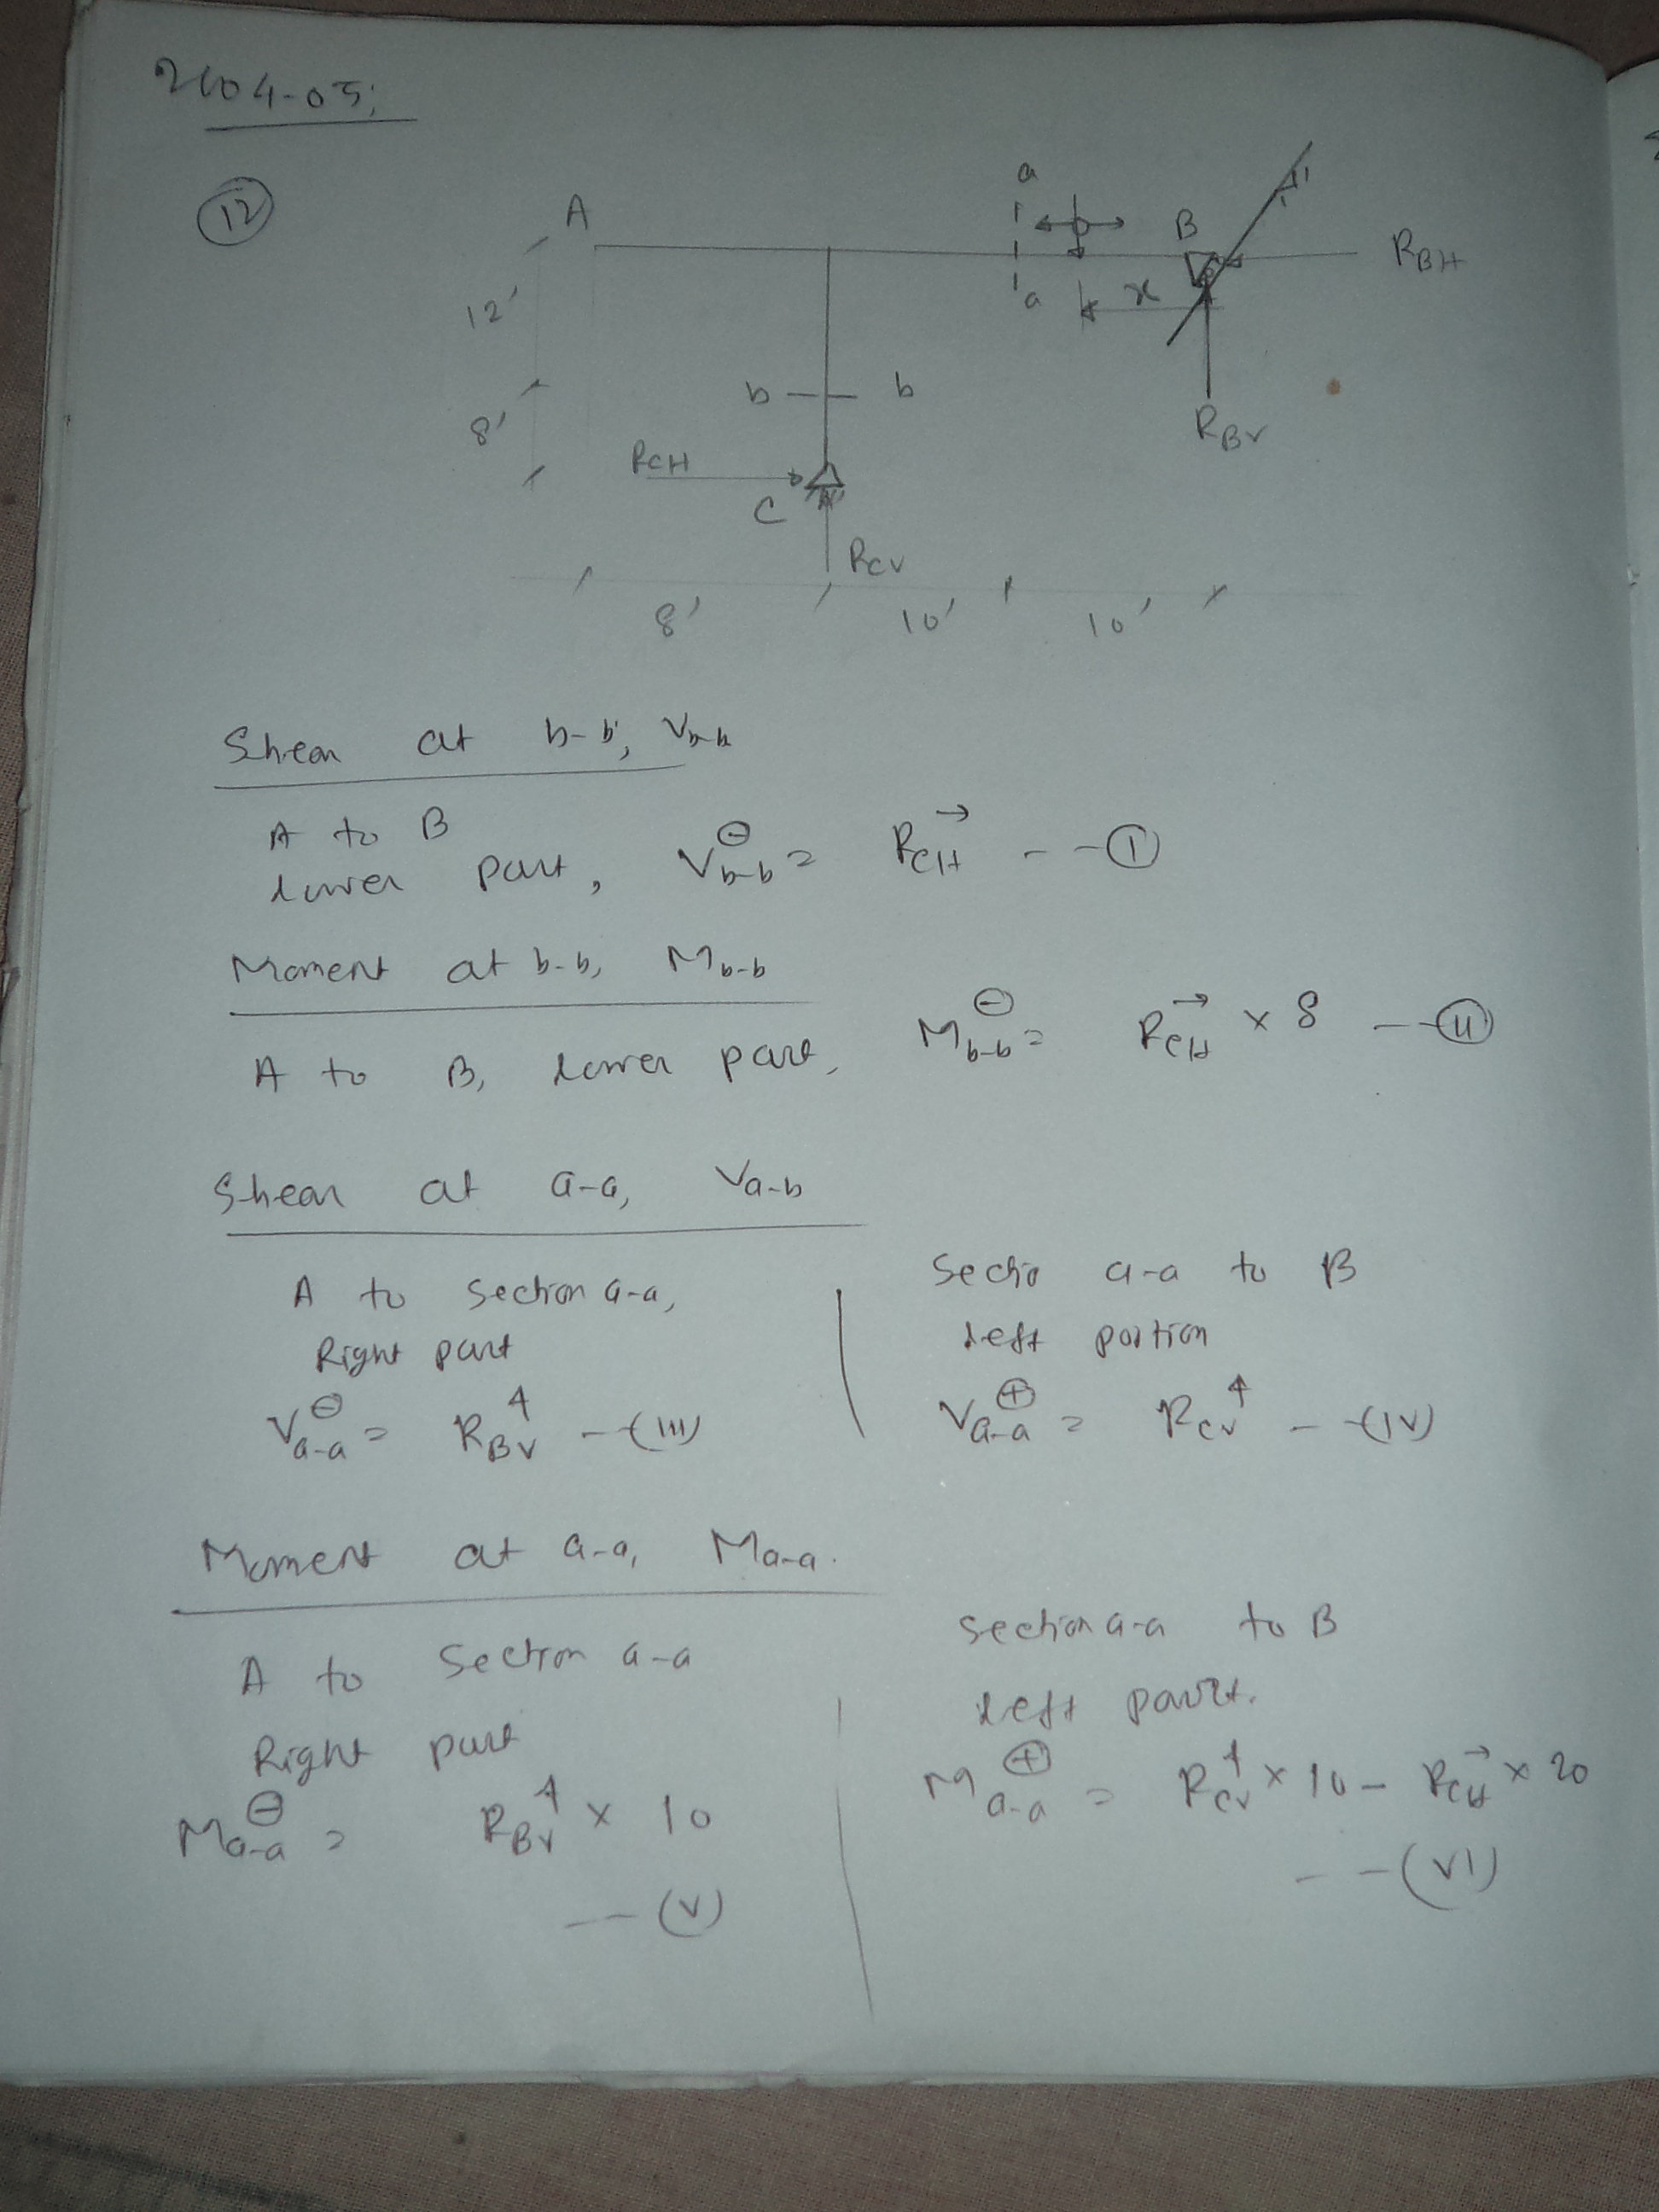 2004-05;
12
a
A
B
R_BH
12'
a
x
b
b
8'
R_BV
R_CH
C
R_CV
8'
10'
10'
Shear at b-b, V_b-b
A to B
lower part, V_b-b^⊖ = R_CH^→ -- (I)
Moment at b-b, M_b-b
A to B, lower part, M_b-b^⊖ = R_CH^→ × 8 -- (II)
Shear at a-a, V_a-b
A to section a-a,
Right part
V_a-a^⊖ = R_BV^↑ -- (III)
Sectio a-a to B
left portion
V_a-a^⊕ = R_CV^↑ -- (IV)
Moment at a-a, M_a-a.
A to Section a-a
Right part
M_a-a^⊖ = R_BV^↑ × 10
-- (V)
section a-a to B
left part.
M_a-a^⊕ = R_CV^↑ × 10 - R_CH^→ × 20
-- (VI)